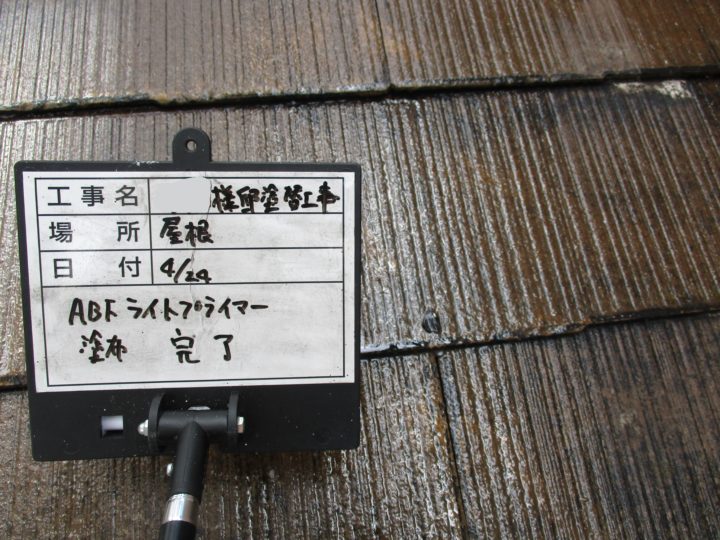 工事名 様邸塗替工事
場所 屋根
日付 4/24
ABFライトプライマー
塗布 完了